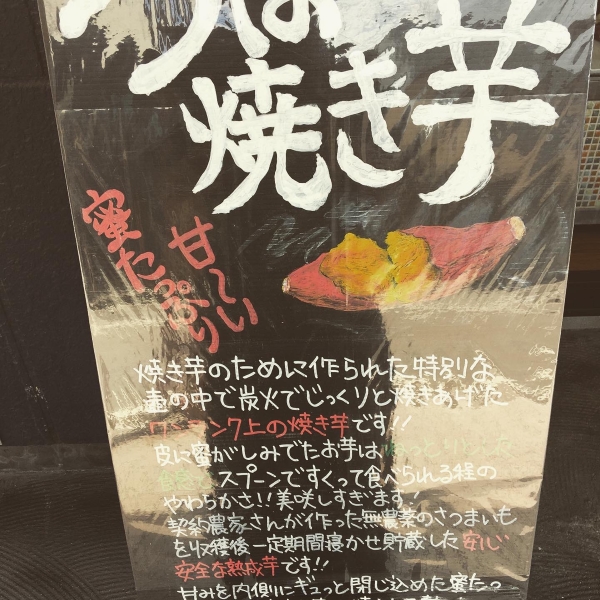 つぼ
焼き芋
甘〜い
蜜たっぷり
焼き芋のために作られた特別な
壷の中で炭火でじっくりと焼きあげた
ワンランク上の焼き芋です!!
皮に蜜がしみでたお芋は
スプーンですくって食べられる程の
やわらかさ!!美味しすぎます!
契約農家さんが作った無農薬のさつまいも
を収穫後一定期間寝かせ貯蔵した安心
安全な熟成芋です!!
甘みを内側にギュっと閉じ込めた蜜たっ